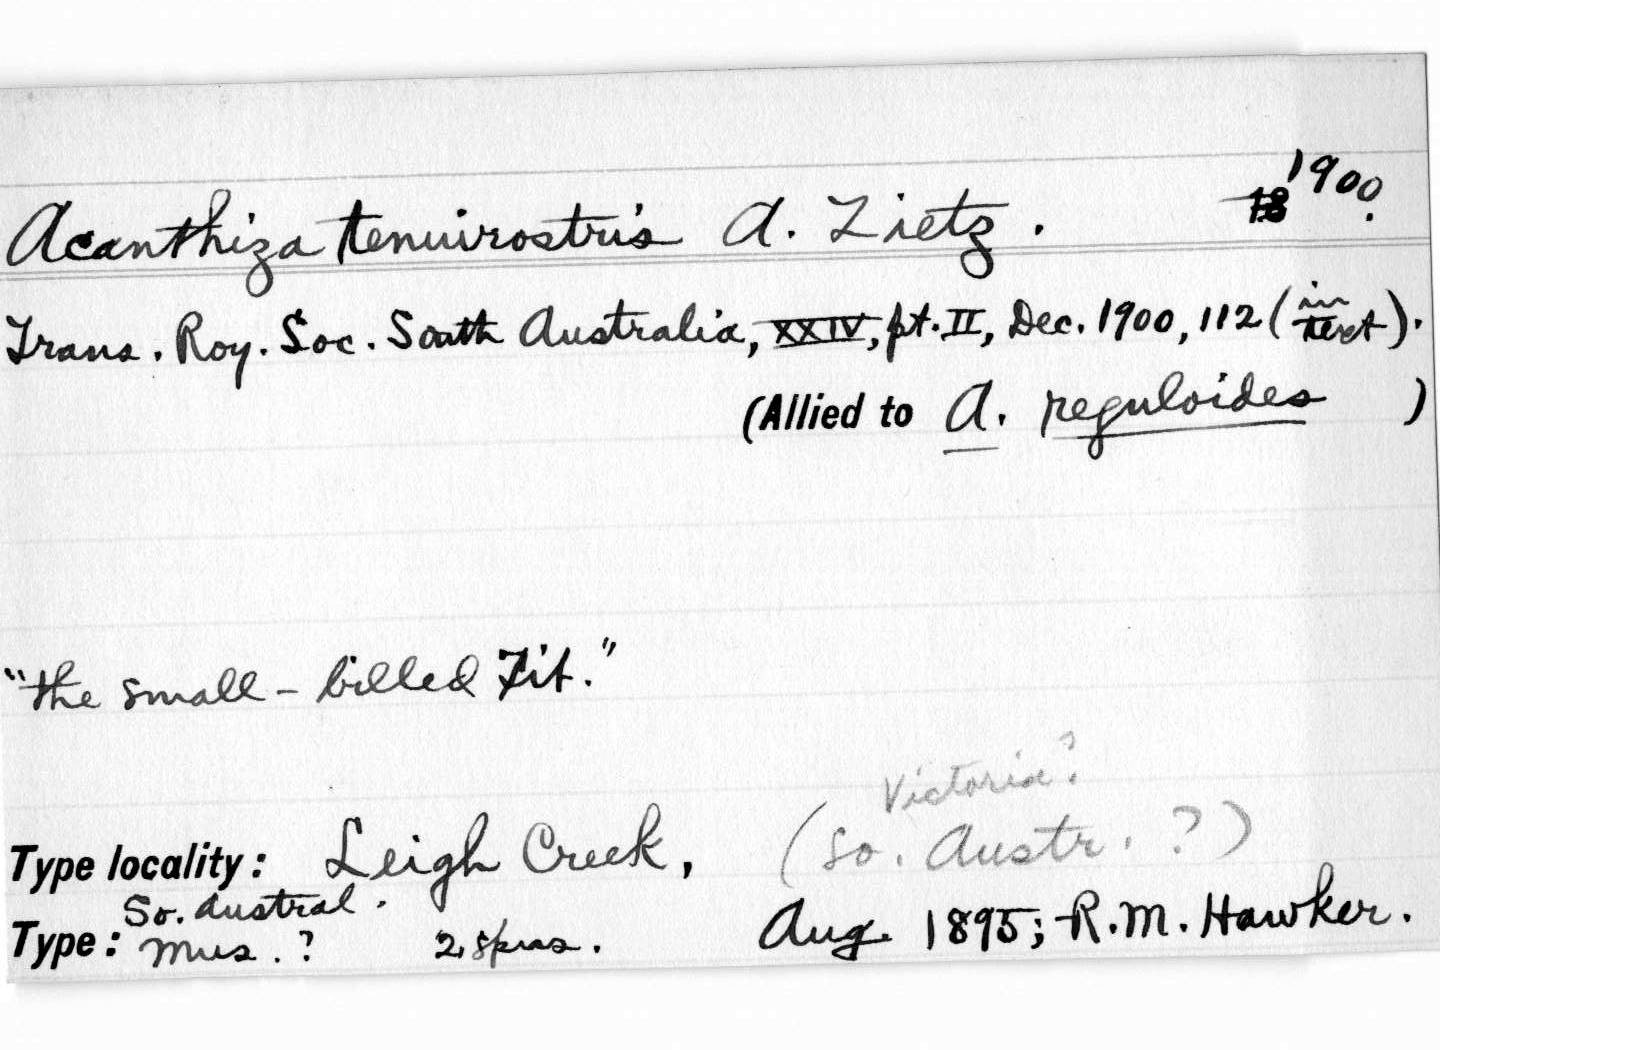 Acanthiza tenuirostris A. Zietz. 1900.
Trans. Roy. Soc. South Australia, XXIV, pt. II, Dec. 1900, 112 (in text).
(Allied to A. reguloides )
"the small-billed Tit."
Victoria?
Type locality: Leigh Creek, (So. Austr. ?)
So. Austral.
Type: Mus. ? 2 spms. Aug. 1895; R.M. Hawker.